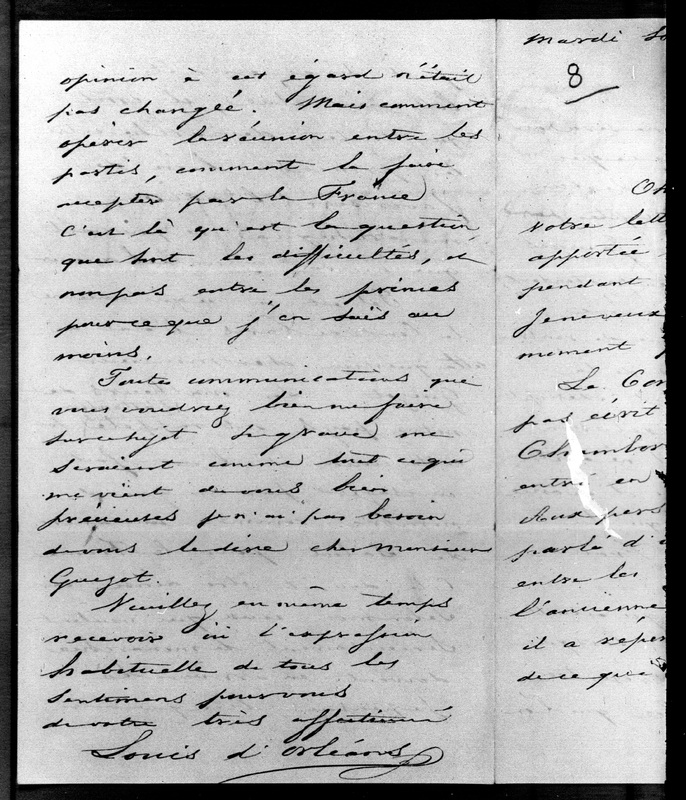 opinion à cet égard n'était
pas changée. Mais comment
opérer la réunion entre les
partis, comment la faire
accepter par la France
C'est là qu'est la question
que sont les difficultés, et
non pas entre les princes
pour ce que j'en sais au
moins.
Toutes communications que
vous voudriez bien me faire
sur ce sujet si grave me
seraient comme tout ce qui
me vient de vous bien
précieuses je n'ai pas besoin
de vous le dire cher Monsieur
Guizot.
Veuillez en même temps
recevoir ici l'expression
habituelle de tous les
sentimens pour vous
de votre très affectionné
Louis d'Orléans
Mardi
8
votre lett
apportée
pendant
moment
Le Com
pas écrit
Chambor
entré en
deux pers
parlé d'
entre les
l'ancienne
il a répé
de ce que